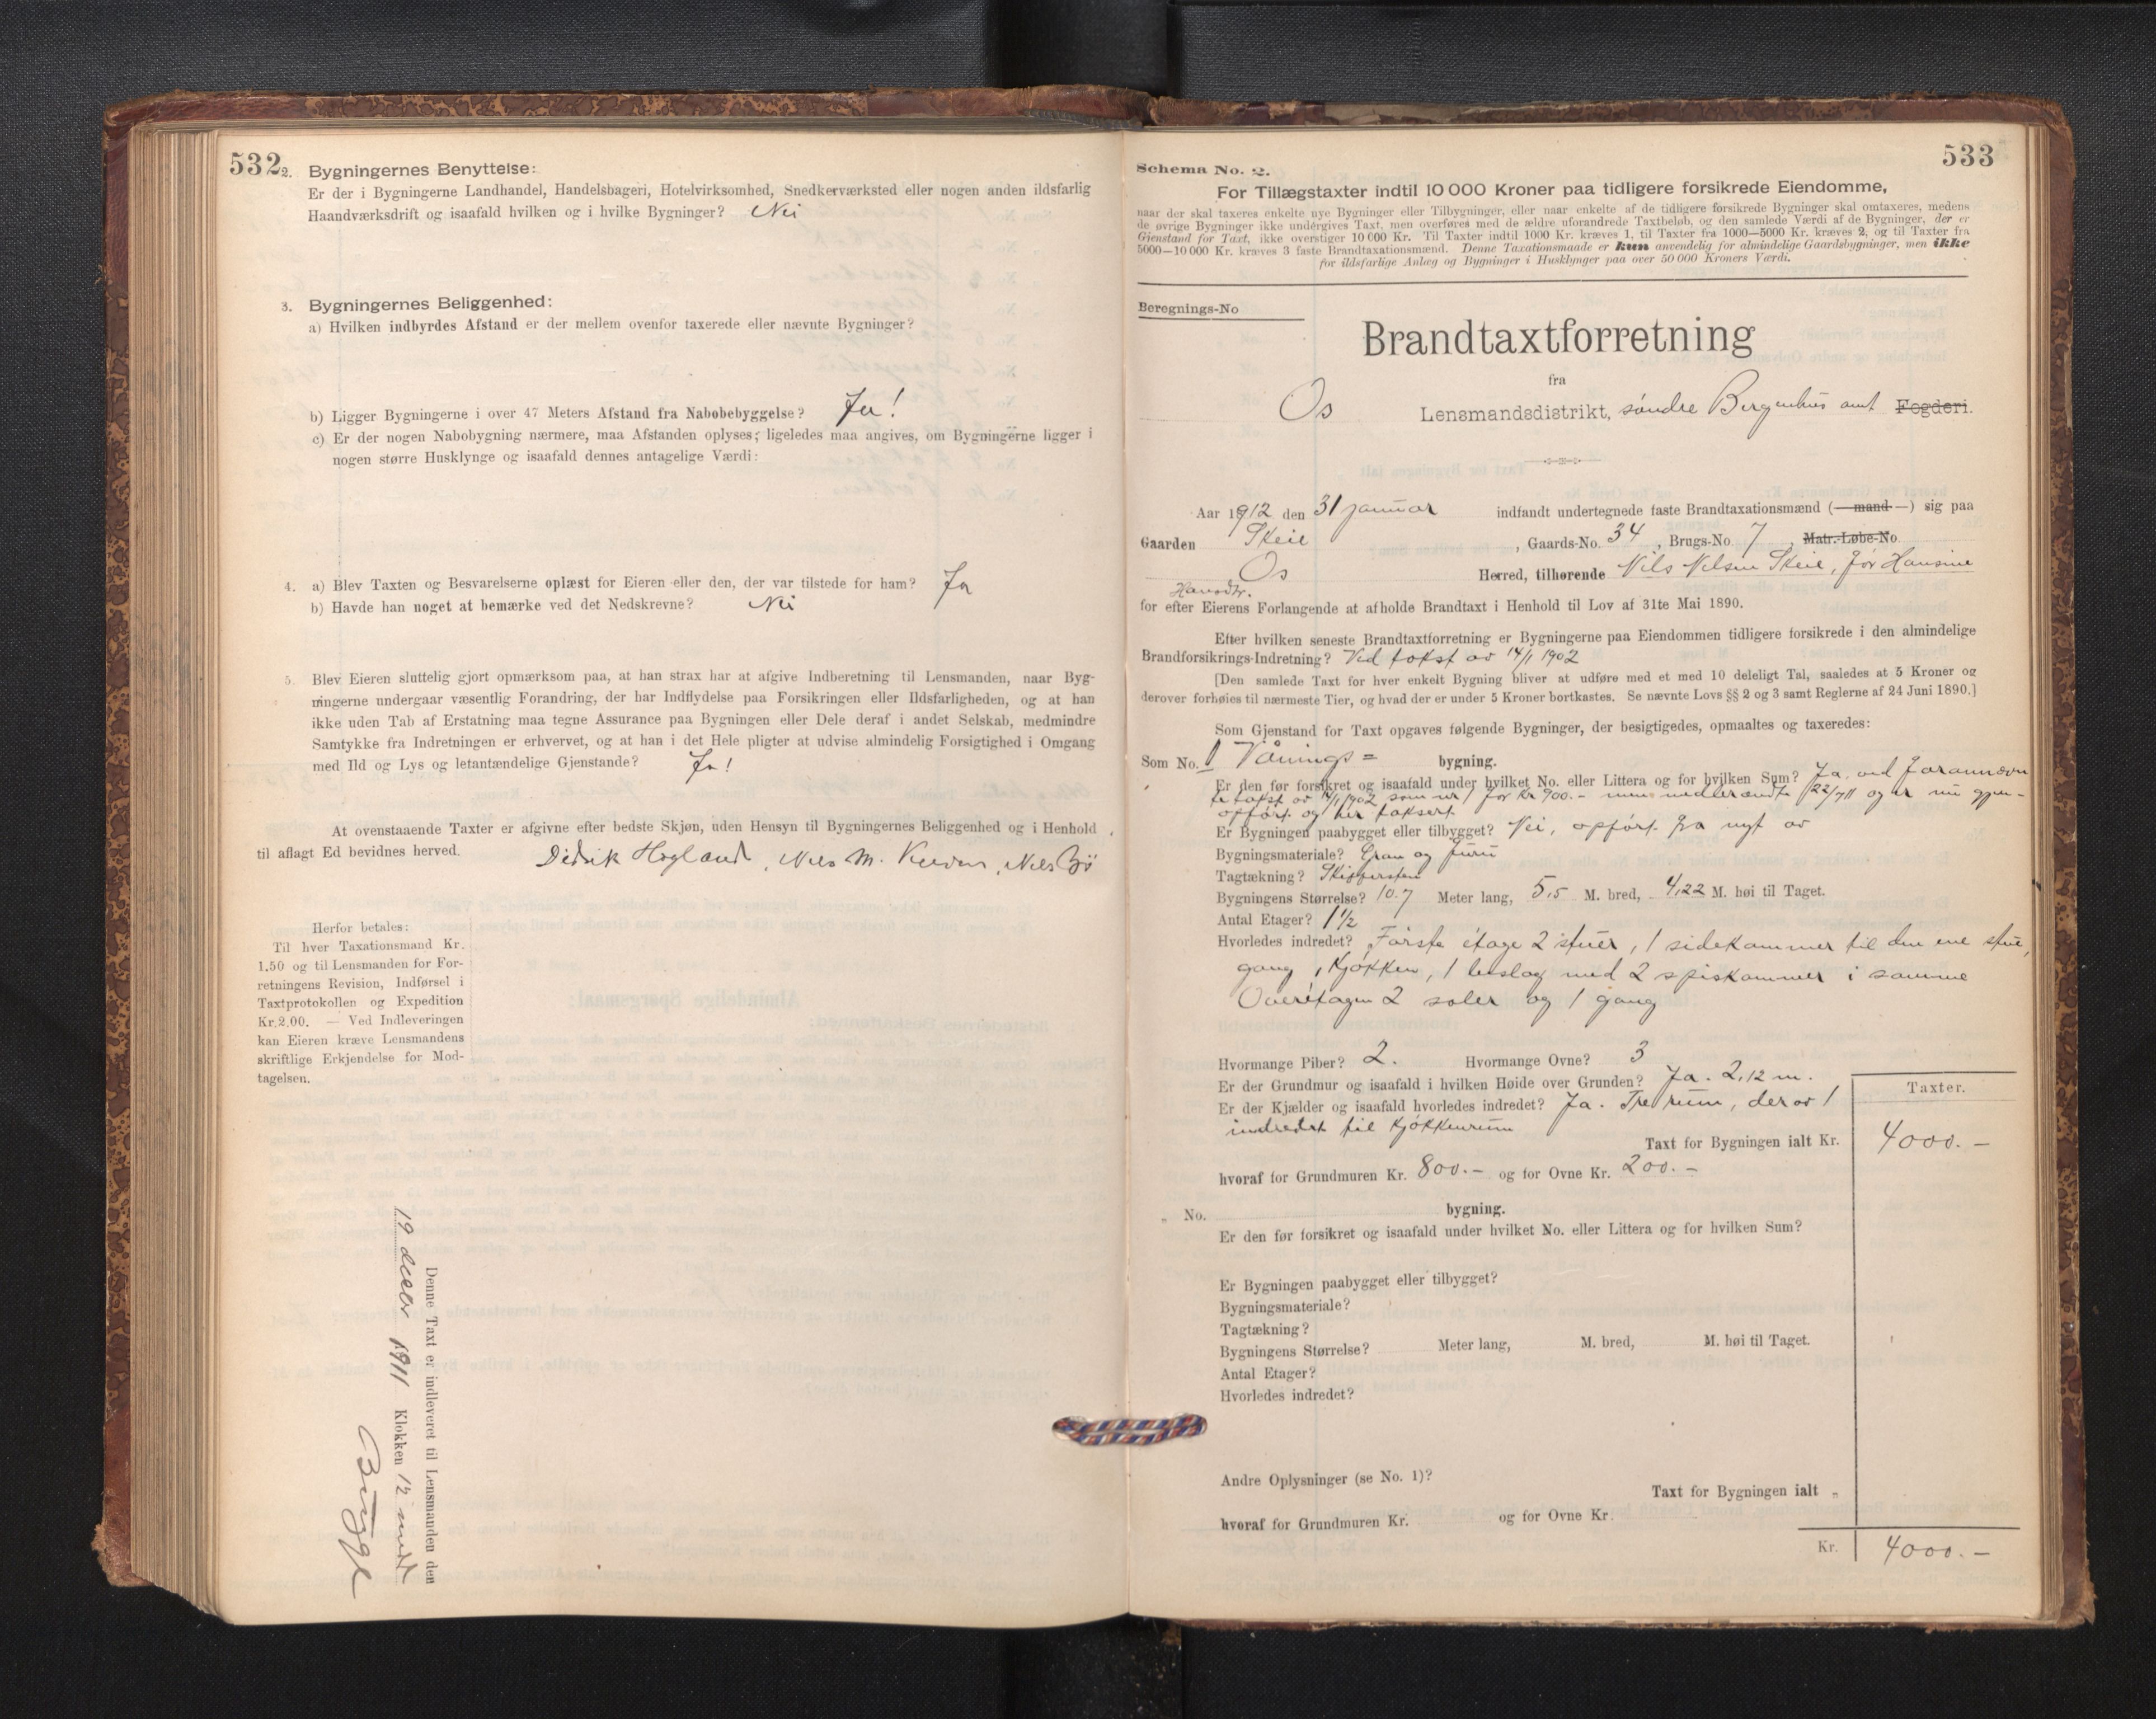 532
2. Bygningernes Benyttelse:
Er der i Bygningerne Landhandel, Handelsbageri, Hotelvirksomhed, Snedkerværksted eller nogen anden ildsfarlig
Haandværksdrift og isaafald hvilken og i hvilke Bygninger? Nei
3. Bygningernes Beliggenhed:
a) Hvilken indbyrdes Afstand er der mellem ovenfor taxerede eller nævnte Bygninger?
b) Ligger Bygningerne i over 47 Meters Afstand fra Nabobebyggelse? Ja!
c) Er der nogen Nabobygning nærmere, maa Afstanden oplyses; ligeledes maa angives, om Bygningerne ligger i
nogen større Husklynge og isaafald dennes antagelige Værdi:
4. a) Blev Taxten og Besvarelserne oplæst for Eieren eller den, der var tilstede for ham? Ja
b) Havde han noget at bemærke ved det Nedskrevne? Nei
5. Blev Eieren sluttelig gjort opmærksom paa, at han strax har at afgive Indberetning til Lensmanden, naar Byg-
ningerne undergaar væsentlig Forandring, der har Indflydelse paa Forsikringen eller Ildsfarligheden, og at han
ikke uden Tab af Erstatning maa tegne Assurance paa Bygningen eller Dele deraf i andet Selskab, medmindre
Samtykke fra Indretningen er erhvervet, og at han i det Hele pligter at udvise almindelig Forsigtighed i Omgang
med Ild og Lys og letantændelige Gjenstande? Ja!
At ovenstaaende Taxter er afgivne efter bedste Skjøn, uden Hensyn til Bygningernes Beliggenhed og i Henhold
til aflagt Ed bevidnes herved. Didrik Hogland, Nils M. Nils Bö
Herfor betales:
Til hver Taxationsmand Kr.
1.50 og til Lensmanden for For-
retningens Revision, Indførsel i
Taxtprotokollen og Expedition
Kr. 2.00. — Ved Indleveringen
kan Eieren kræve Lensmandens
skriftlige Erkjendelse for Mod-
tagelsen.
Denne Taxt er indleveret til Lensmanden den
19 decbr 1911 Klokken 12 midd
Brügge
533
Schema No. 2.
For Tillægstaxter indtil 10 000 Kroner paa tidligere forsikrede Eiendomme,
naar der skal taxeres enkelte nye Bygninger eller Tilbygninger, eller naar enkelte af de tidligere forsikrede Bygninger skal omtaxeres, medens
de øvrige Bygninger ikke undergives Taxt, men overføres med de ældre uforandrede Taxtbeløb, og den samlede Værdi af de Bygninger, der er
Gjenstand for Taxt, ikke overstiger 10 000 Kr. Til Taxter indtil 1000 Kr. kræves 1, til Taxter fra 1000—5000 Kr. kræves 2, og til Taxter fra
5000—10 000 Kr. kræves 3 faste Brandtaxationsmænd. Denne Taxationsmaade er kun anvendelig for almindelige Gaardsbygninger, men ikke
for ildsfarlige Anlæg og Bygninger i Husklynger paa over 50 000 Kroners Værdi.
Beregnings-No
Brandtaxtforretning
fra
Os Lensmandsdistrikt, söndre Bergenhus amt Fogderi.
Aar 1912 den 31 januar indfandt undertegnede faste Brandtaxationsmænd (—mand—) sig paa
Gaarden Skeie, Gaards-No. 34, Brugs-No. 7, Matr.-Løbe-No.
Os Herred, tilhørende Nils Nilsen Skeie, för Hansine
Hansdtr.
for efter Eierens Forlangende at afholde Brandtaxt i Henhold til Lov af 31te Mai 1890.
Efter hvilken seneste Brandtaxtforretning er Bygningerne paa Eiendommen tidligere forsikrede i den almindelige
Brandforsikrings-Indretning? Ved takst av 14/1 1902
[Den samlede Taxt for hver enkelt Bygning bliver at udføre med et med 10 deleligt Tal, saaledes at 5 Kroner og
derover forhøies til nærmeste Tier, og hvad der er under 5 Kroner bortkastes. Se nævnte Lovs §§ 2 og 3 samt Reglerne af 24 Juni 1890.]
Som Gjenstand for Taxt opgaves følgende Bygninger, der besigtigedes, opmaaltes og taxeredes:
Som No. 1 Vånings= bygning.
Er den før forsikret og isaafald under hvilket No. eller Littera og for hvilken Sum? Ja, ved forannevn
te takst av 14/1 1902 som nr 1 for kr 900.- men nedbrændte 22/7 11 og er nu gjen-
opfört og her taksert
Er Bygningen paabygget eller tilbygget? Nei, opfört fra nyt av
Bygningsmateriale? Gran og furu
Tagtækning? Skifersten
Bygningens Størrelse? 10.7 Meter lang, 5,5 M. bred, 4,22 M. høi til Taget.
Antal Etager? 1 1/2
Hvorledes indredet? Förste etage 2 stuer, 1 sidekammer til den ene stue,
gang, kjökken, 1 bislag med 2 spiskammer i samme
Overetagen 2 saler og 1 gang
Hvormange Piber? 2. Hvormange Ovne? 3
Er der Grundmur og isaafald i hvilken Høide over Grunden? Ja. 2,12 m.
Er der Kjælder og isaafald hvorledes indredet? Ja. Tre rum, derav 1
indredet til kjökkenrum
Taxter.
Taxt for Bygningen ialt Kr. 4000.-
hvoraf for Grundmuren Kr. 800.- og for Ovne Kr. 200.-
„ No. bygning.
Er den før forsikret og isaafald under hvilket No. eller Littera og for hvilken Sum?
Er Bygningen paabygget eller tilbygget?
Bygningsmateriale?
Tagtækning?
Bygningens Størrelse? Meter lang, M. bred, M. høi til Taget.
Antal Etager?
Hvorledes indredet?
Andre Oplysninger (se No. 1)?
Taxt for Bygningen ialt „
hvoraf for Grundmuren Kr. og for Ovne Kr.
Kr. 4000.-